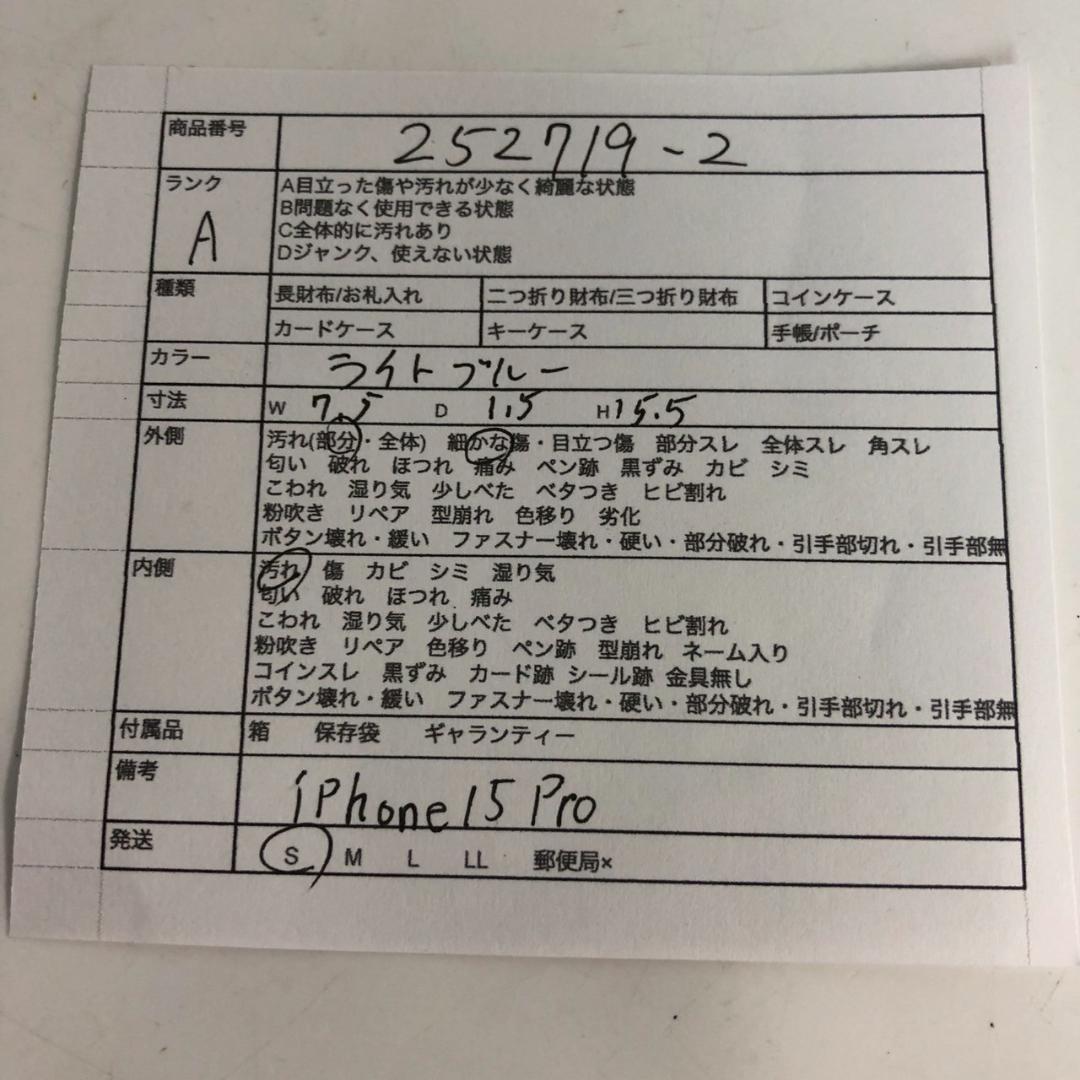 商品番号 252719-2
ランク A
A目立った傷や汚れが少なく綺麗な状態
B問題なく使用できる状態
C全体的に汚れあり
Dジャンク、使えない状態
種類 長財布/お札入れ 二つ折り財布/三つ折り財布 コインケース
カードケース キーケース 手帳/ポーチ
カラー ライトブルー
寸法 W 7.5 D 1.5 H 15.5
外側 汚れ(部分・全体) 細かな傷・目立つ傷 部分スレ 全体スレ 角スレ
匂い 破れ ほつれ 痛み ペン跡 黒ずみ カビ シミ
こわれ 湿り気 少しべた ベタつき ヒビ割れ
粉吹き リペア 型崩れ 色移り 劣化
ボタン壊れ・緩い ファスナー壊れ・硬い・部分破れ・引手部切れ・引手部無
内側 汚れ 傷 カビ シミ 湿り気
匂い 破れ ほつれ 痛み
こわれ 湿り気 少しべた ベタつき ヒビ割れ
粉吹き リペア 色移り ペン跡 型崩れ ネーム入り
コインスレ 黒ずみ カード跡 シール跡 金具無し
ボタン壊れ・緩い ファスナー壊れ・硬い・部分破れ・引手部切れ・引手部無
付属品 箱 保存袋 ギャランティー
備考 iPhone 15 Pro
発送 S M L LL 郵便局×